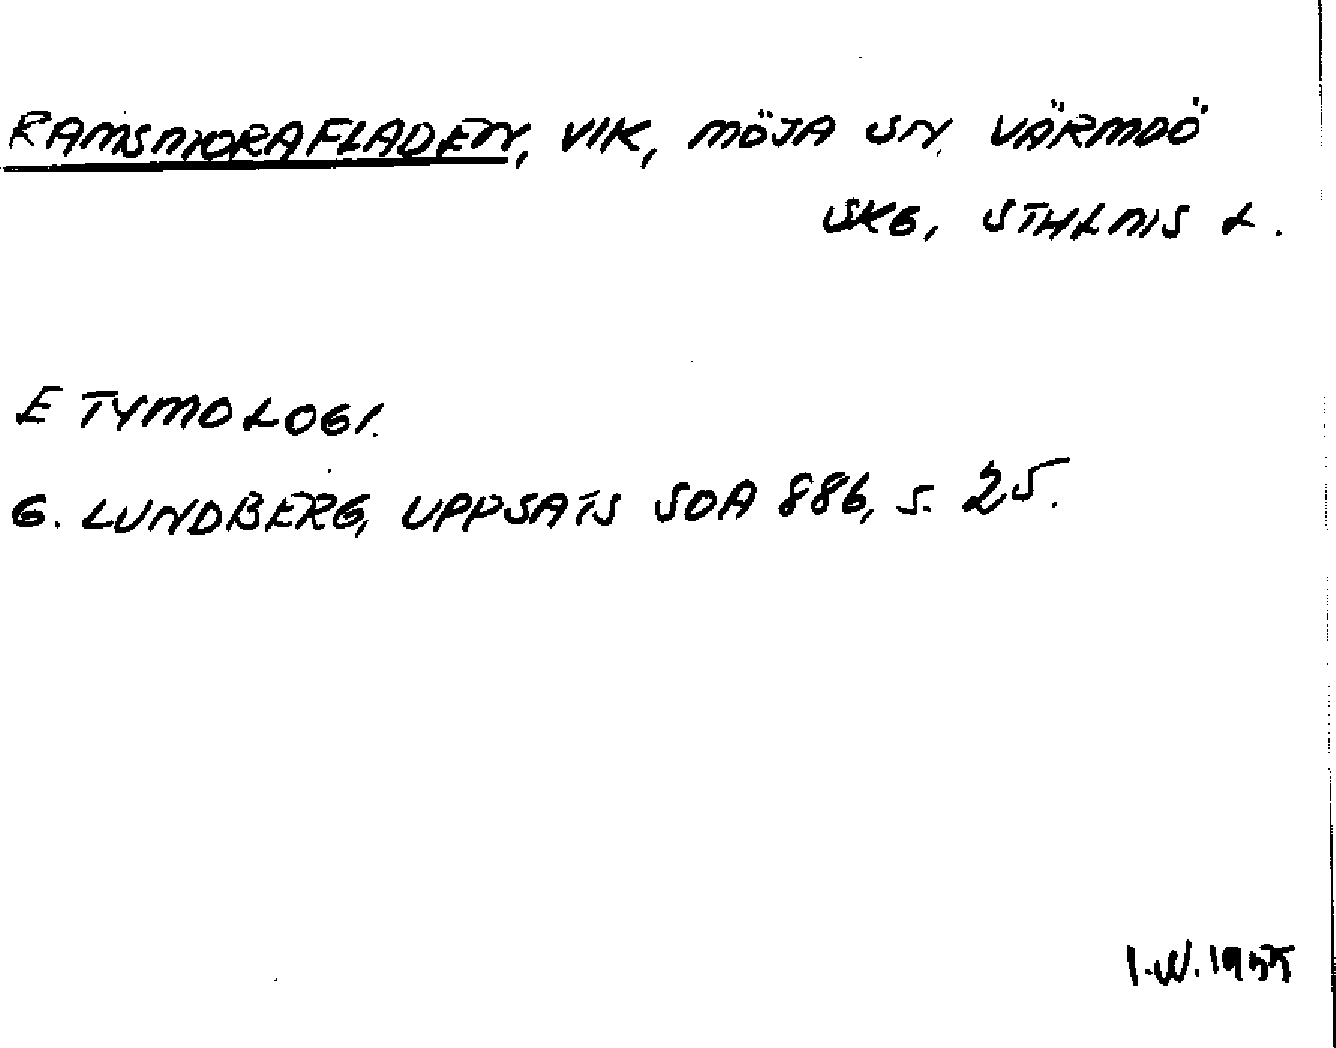 RAMSMORAFLADEN, VIK, MÖJA SN. VÄRMDÖ
SKG, STHLMS L.
ETYMOLOGI.
G. LUNDBERG, UPPSATS SOA 886, S. 25.
I.W. 1955